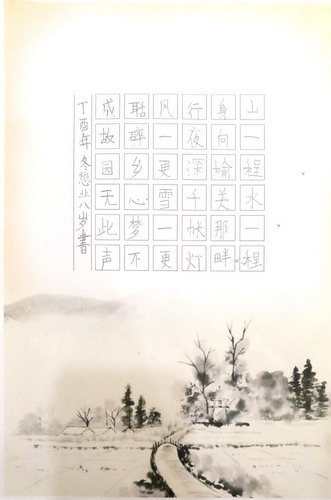 山一程水一程
身向榆关那畔
行夜深千帐灯
风一更雪一更
聒碎乡心梦不
成故园无此声
丁酉年冬八岁書